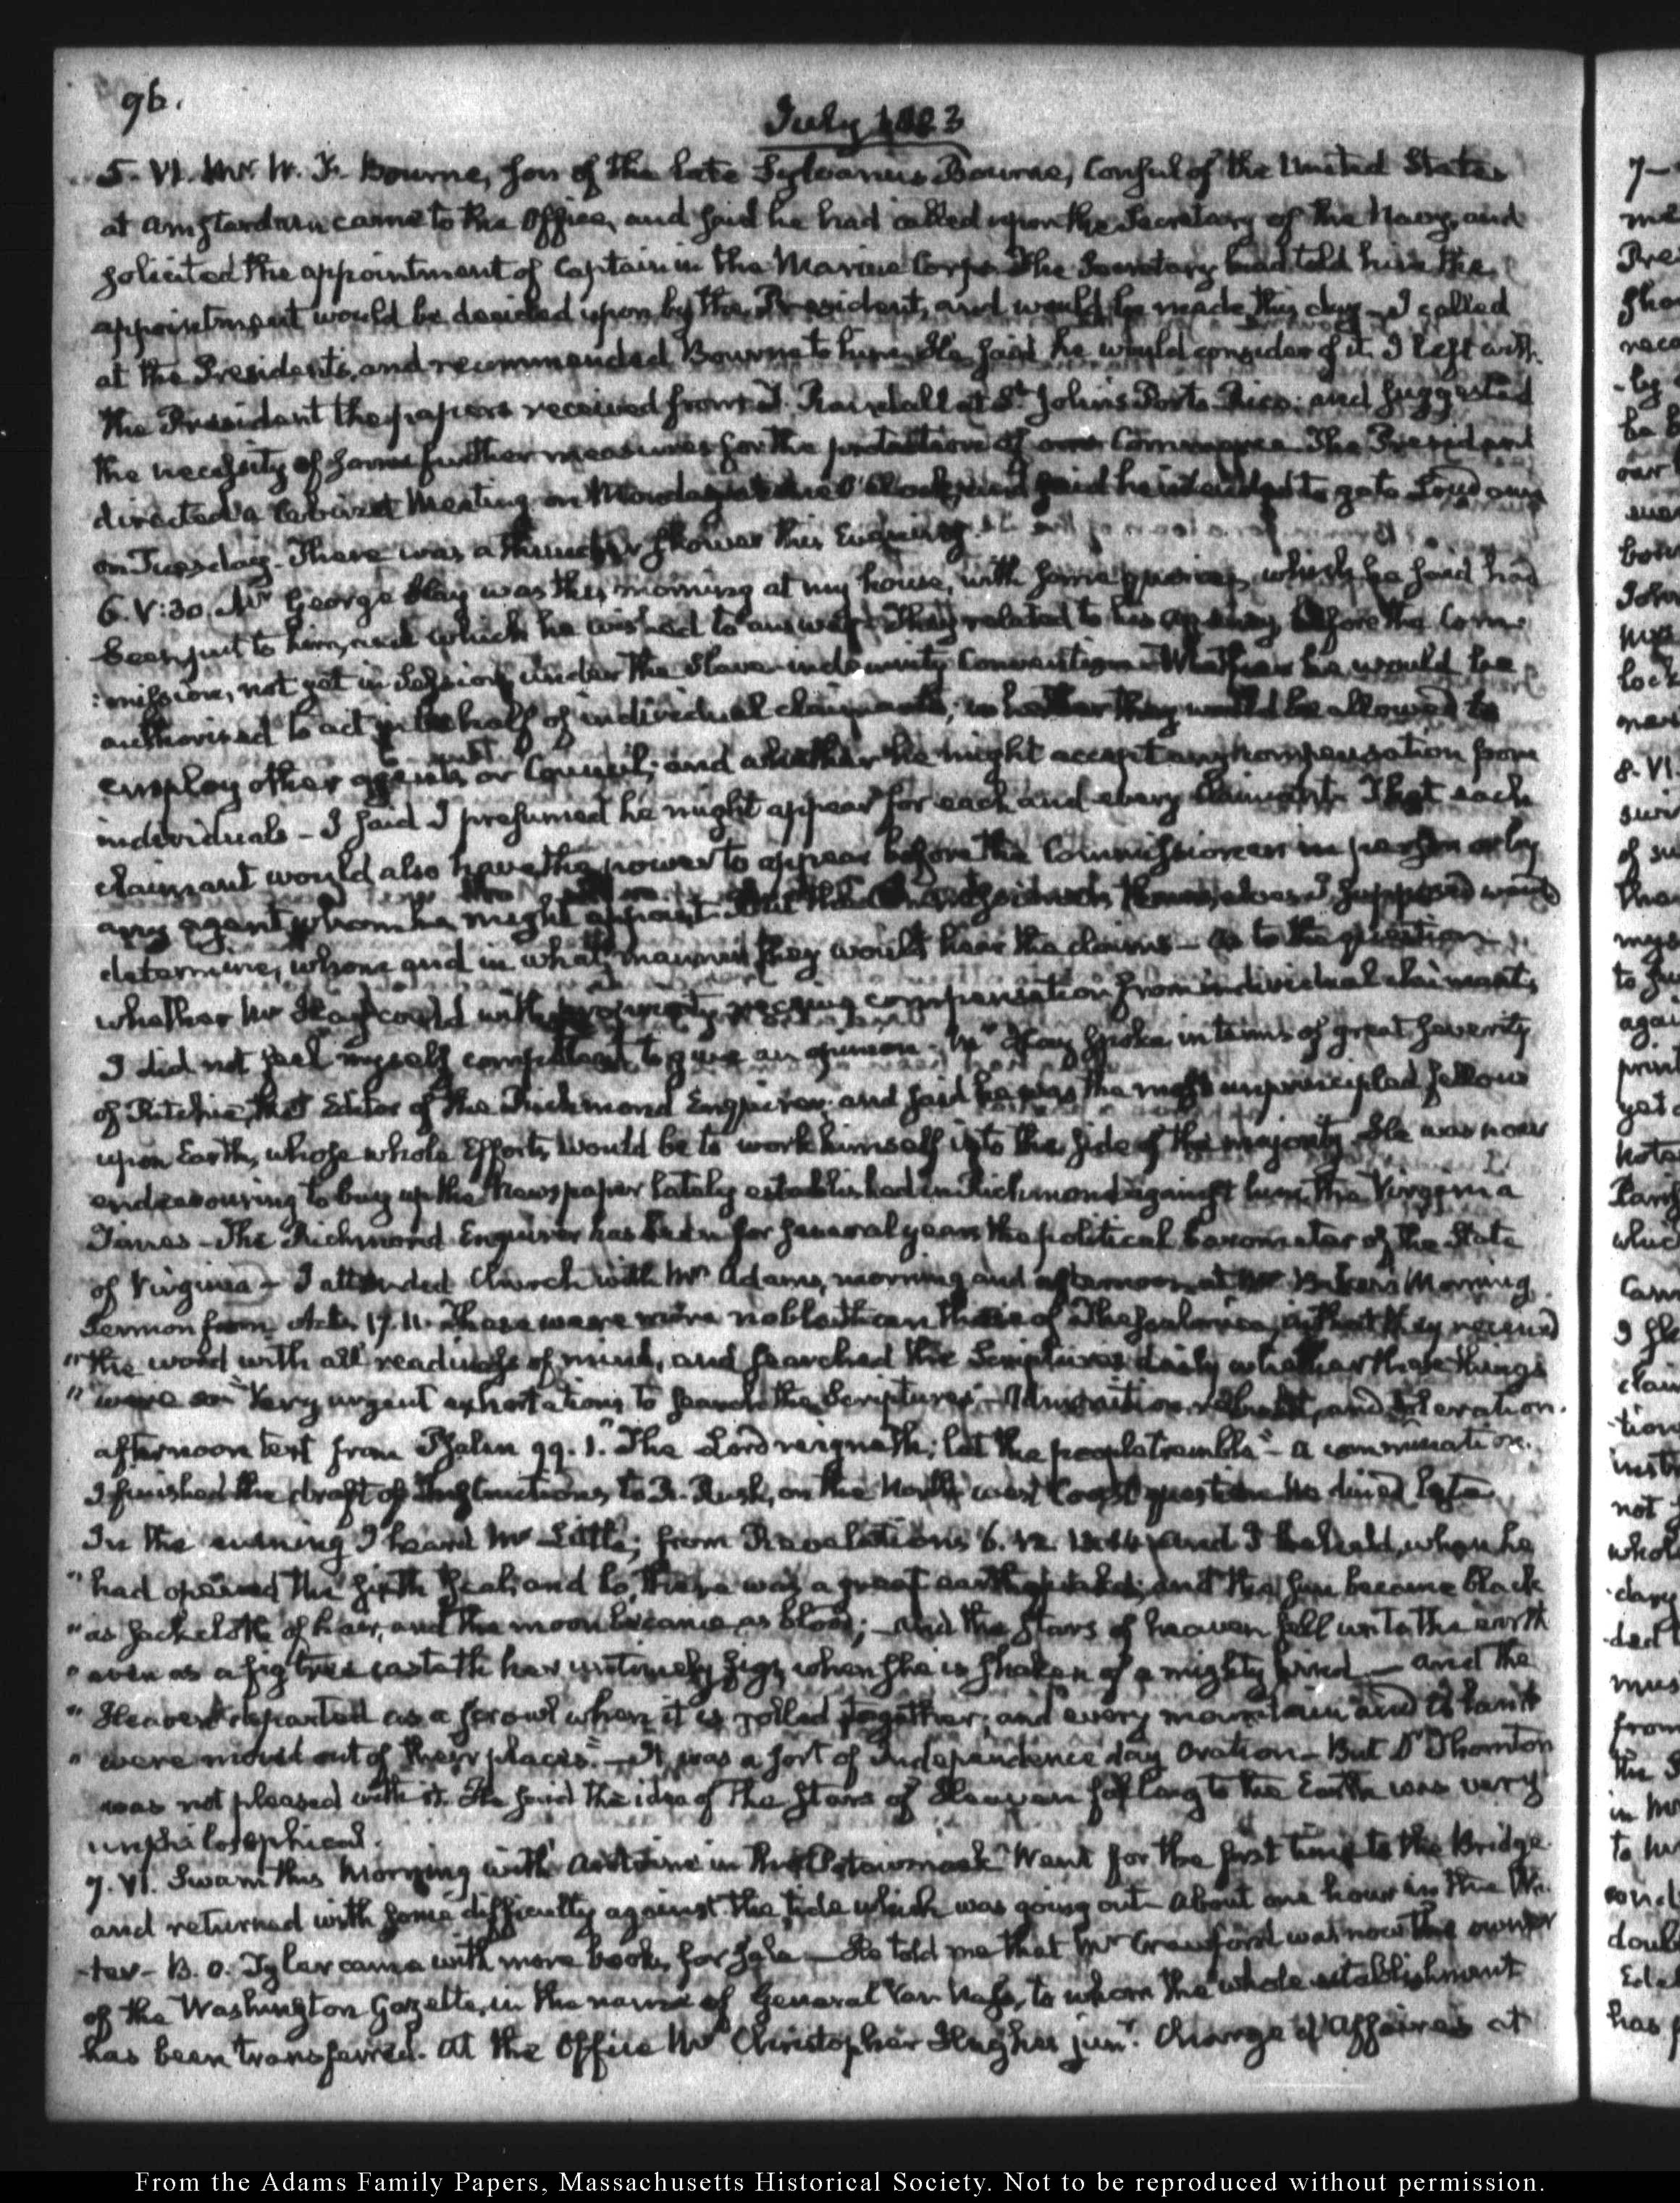 96.
July 1823
5. VI. Mr. W. Bourne, son of the late Sylvanus Bourne, Consul of the United States
at Amsterdam came to the Office, and said he had called upon the Secretary of the Navy, and
solicited the appointment of Captain in the Marine Corps. The Secretary had told him the
appointment would be decided upon by the President, and would be made this day — I called
at the President's, and recommended Bourne to him. He said he would consider of it. I left with
the President the papers received from Randall at St. John's Porto Rico: and suggested
the necessity of some further measures for the protection of our Commerce. The President
directed a Cabinet Meeting on Monday at one O'Clock, and said he intended to go to Loudoun
on Tuesday. There was a thunder shower this Evening.
6. V:30. Mr George Hay was this morning at my house, with some queries, which he said had
been put to him, and which he wished to answer. They related to his agency before the Com-
:mission, not yet in Session, under the Slave-indemnity Convention. Whether he would be
authorised to act in behalf of individual claimants; whether they would be allowed to
employ other agents or Council; and whether he might accept any compensation from
individuals — I said I presumed he might appear for each and every Claimant. That each
claimant would also have the power to appear before the Commissioners in person or by
any agent whom he might appoint. But the Commissioners themselves I supposed would
determine, whom and in what manner they would hear the claims — As to the question
whether Mr Hay could with propriety receive compensation from individual claimants,
I did not feel myself competent to give an opinion. Mr Hay spoke in terms of great severity
of Ritchie, the Editor of the Richmond Enquirer, and said he was the most unprincipled fellow
upon Earth, whose whole Efforts would be to work himself into the side of the majority. He was now
endeavouring to buy up the Newspaper lately established in Richmond against him, the Virginia
Times — The Richmond Enquirer has been for several years the political barometer of the State
of Virginia — I attended Church with Mrs Adams, morning and afternoon at Mr Baker's Morning
Sermon from Acts 17.11. These were more noble than those of Thessalonica, in that they received
"the word with all readiness of mind, and searched the Scriptures daily whether those things
"were so" Very urgent exhortations to search the Scriptures — Admonition, rebuke, and toleration.
afternoon text from Psalm 99. 1. "The Lord reigneth; let the people tremble" — a commination.
I finished the draft of Instructions to R. Rush, on the North-west Coast question. We dined late.
In the evening I heard Mr Little; from Revelations 6. 12. 13. 14. And I beheld, when he
"had opened the sixth Seal, and lo, there was a great earthquake; and the sun became black
"as sackcloth of hair, and the moon became as blood; — And the stars of heaven fell unto the earth
"even as a fig tree casteth her untimely figs, when she is shaken of a mighty wind — and the
"Heaven departed as a scrowl when it is rolled together; and every mountain and island
"were moved out of their places." — It was a sort of Independence day Oration — But Dr Thornton
was not pleased with it. He said the idea of the Stars of Heaven falling to the Earth was very
unphilosophical.
7. VI. Swam this Morning with Antoine in the Potowmack. Went for the first time to the Bridge
and returned with some difficulty against the tide which was going out — about one hour in the Wa-
-ter — B. O. Tyler came with more books for sale — He told me that Mr Crawford was now the owner
of the Washington Gazette, in the name of General Van Ness, to whom the whole establishment
has been transferred. At the Office Mr Christopher Hughes junr. Chargé d'Affaires at
From the Adams Family Papers, Massachusetts Historical Society. Not to be reproduced without permission.